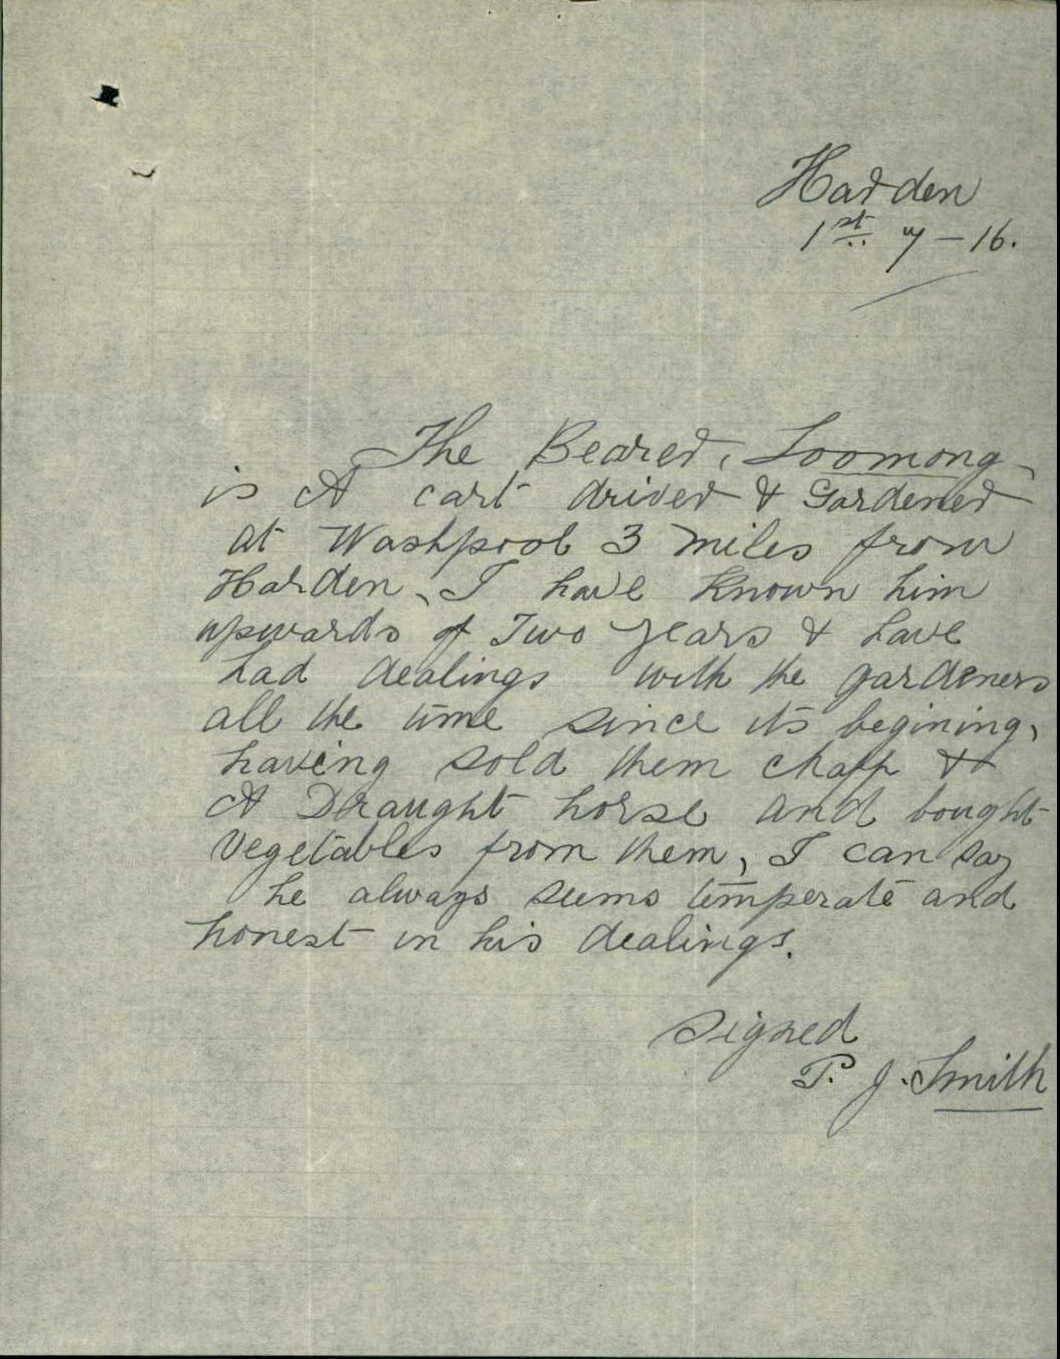 Harden
1st 7-16.
The Bearer, Loomong,
is A cart driver & Gardener
at Washpool 3 miles from
Harden, I have known him
upwards of Two years & have
had dealings with the gardeners
all the time since its begining,
having sold them chaff &
A Draught horse and bought
Vegetables from them, I can say
he always seems temperate and
honest in his dealings.
Signed
P. J. Smith